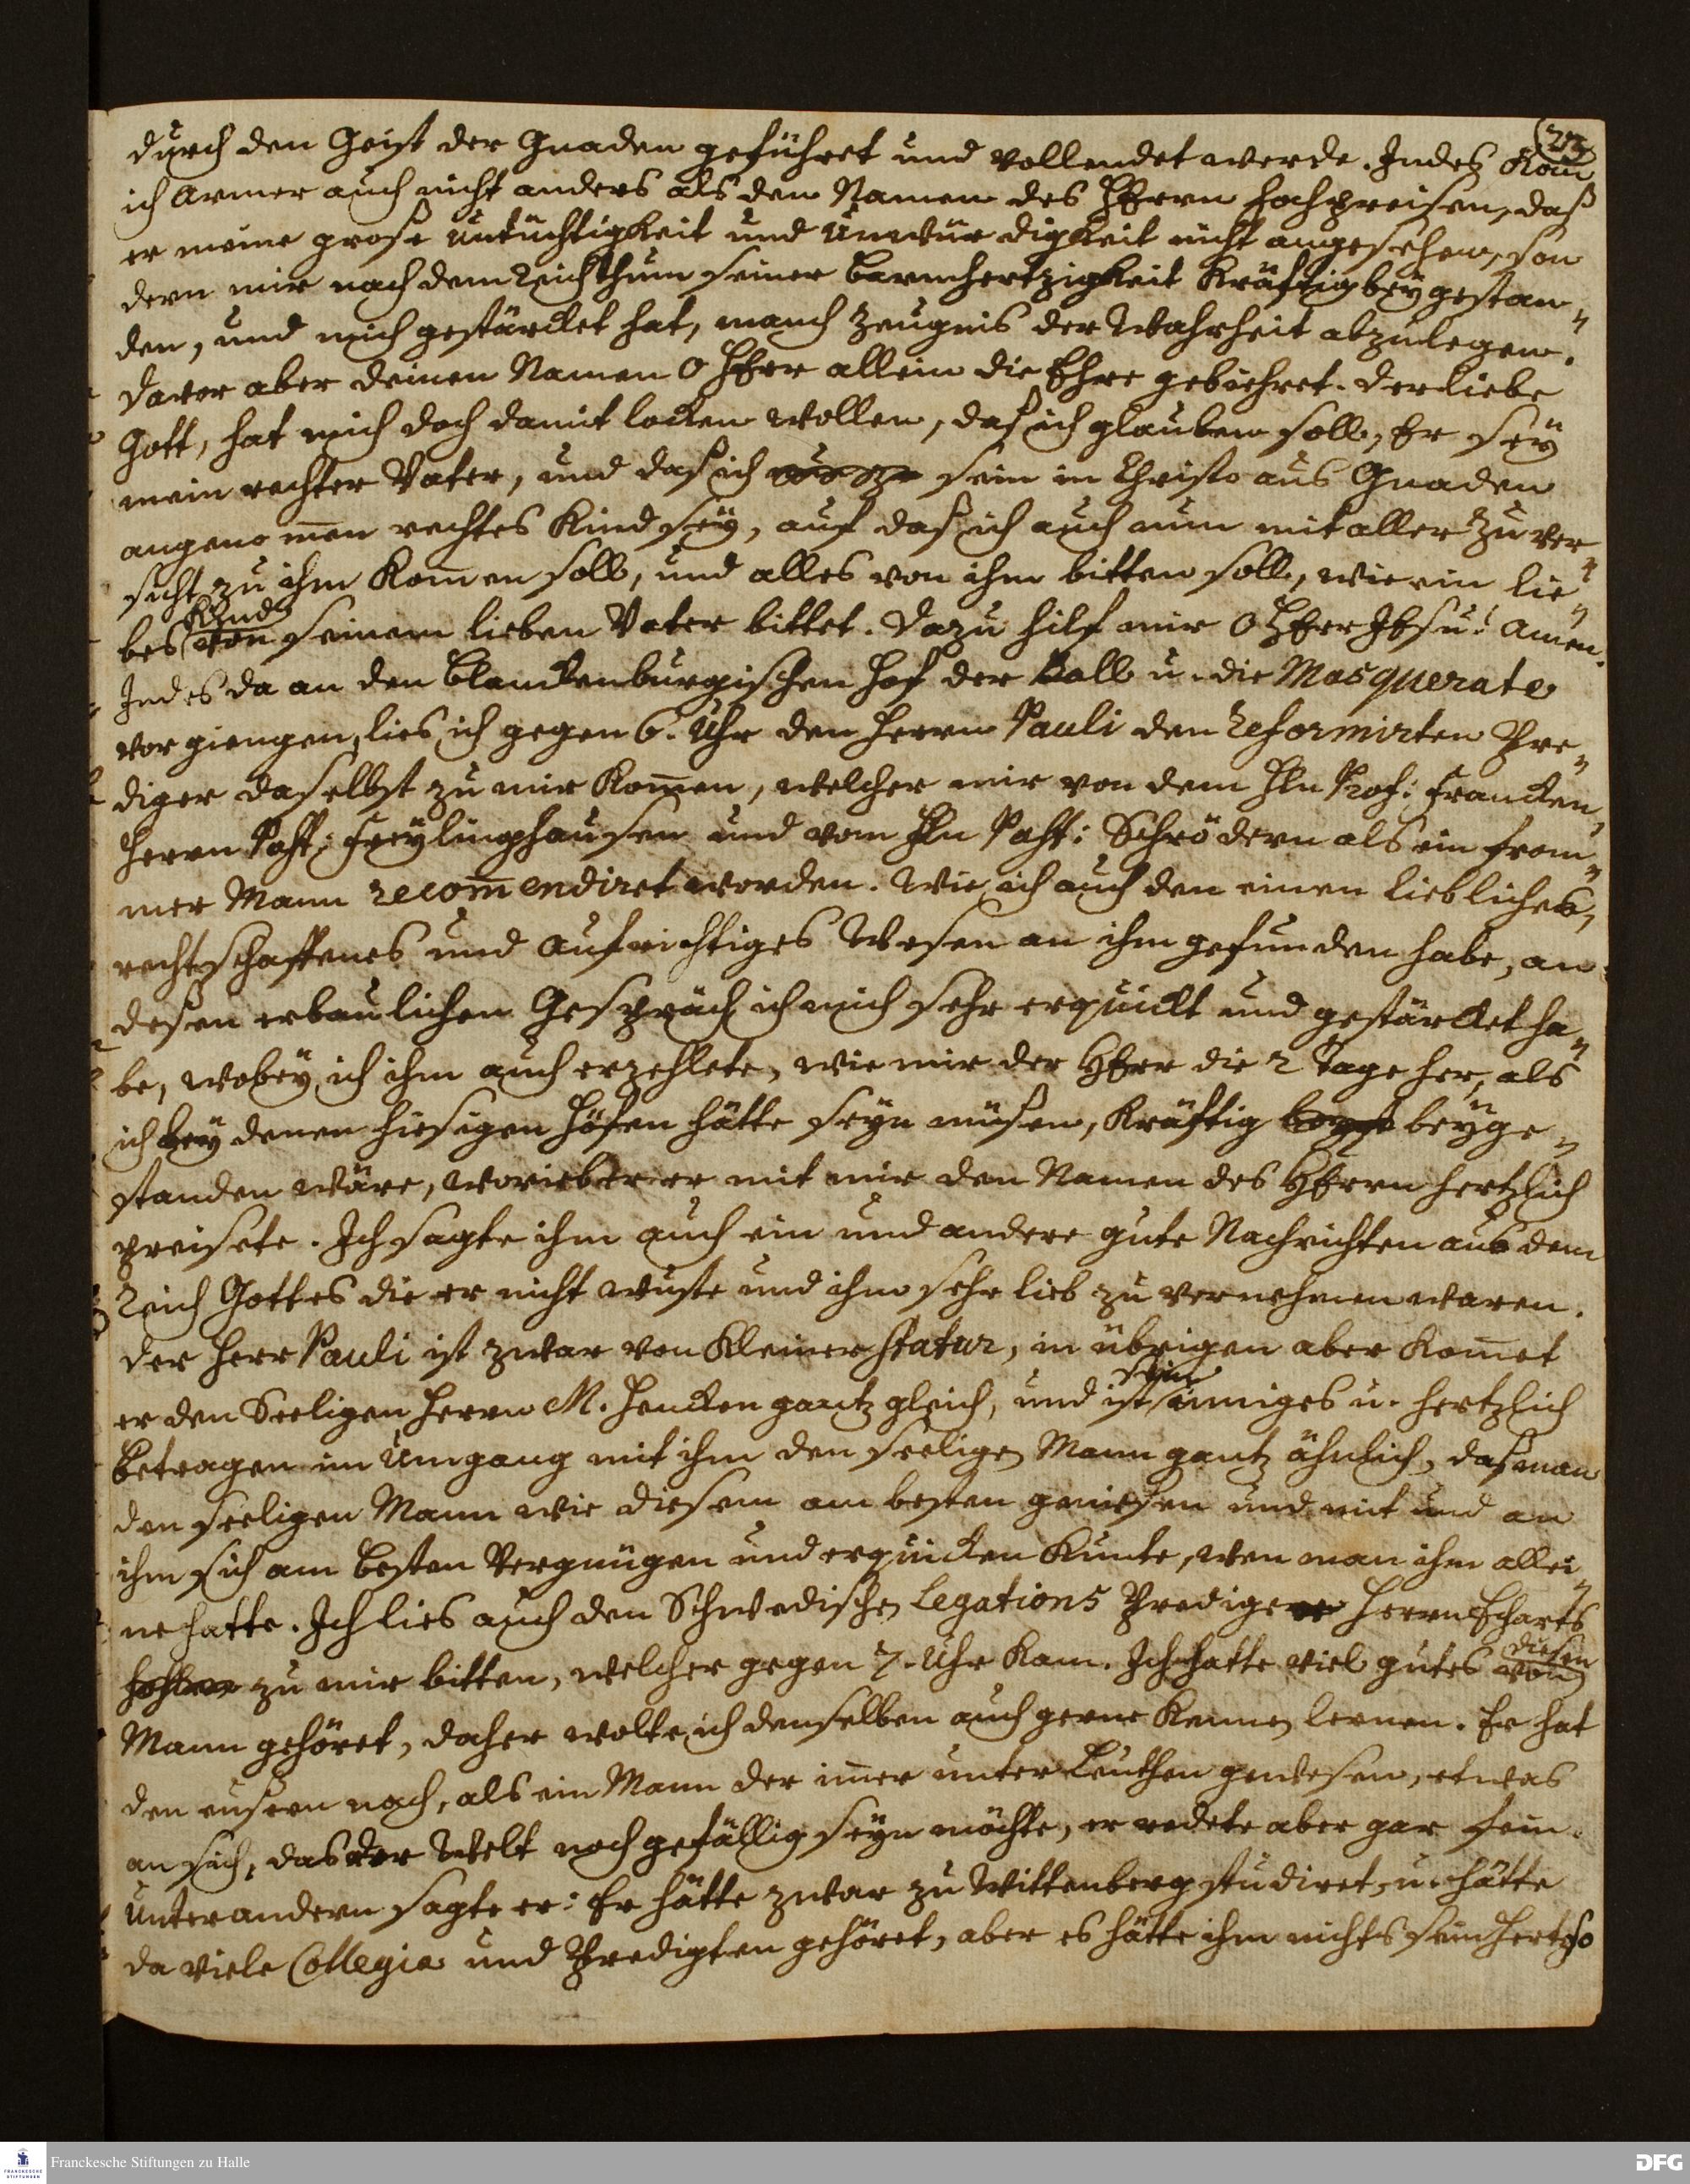 23
durch den Geist der Gnaden geführet und vollendet werde. Indeß kan
ich Armer auch nicht anders als den Namen des HErrn hochpreisen, daß
er meine grose Untüchtigkeit und Unwürdigkeit nicht angesehen, son
dern mir nach dem Reichthum seiner Barmhertzigkeit kräftig beÿ gestan„
den, und mich gestärcket hat, manch Zeugnis der Wahrheit abzulegen.
Davor aber deinen Namen O HErr allein die Ehre gebiehret. Der liebe
Gott, hat mich doch damit locken wollen, daß ich glauben soll, Er seÿ
mein rechter Vater, und daß ich sein in Christo aus Gnaden
angenom̅en rechtes Kind seÿ, auf daß ich auch nun mit aller Zuver
sicht zu ihm kom̅en soll, und alles von ihm bitten soll, wie ein lie„
bes Kind von seinem lieben Vater bittet. Dazu hilf mir O HErr JEsu! Amen.
Indes da an den Blanckenburgischen Hof der Ball u. die Masquerate
vorgiengen, lies ich gegen 6. Uhr den Herrn Pauli den Reformirten Pre„
diger daselbst zu mir kom̅en, welcher mir von dem Hn Prof: Francken,
Herrn Past: Freÿlinghausen und vom Hn Past: Schrödern als ein from„
mer Mann recom̅endiret worden. Wie ich auch den einen liebliches,
rechtschaffenes und aufrichtiges Wesen an ihm gefunden habe, an
deßen erbaulichen Gespräch ich mich sehr erquickt und gestärcket ha„
be, wobeÿ ich ihm auch erzehlete, wie mir der HErr die 2 Tage her, als
ich beÿ denen hiesigen Höfen hätte seÿn müßen, kräftig beÿge„
standen wäre, worieber er mit mir den Namen des HErrn hertzlich
preisete. Ich sagte ihm auch ein und andere gute Nachrichten aus dem
Reich Gottes die er nicht wuste und ihm sehr lieb zu vernehmen waren.
Der Herr Pauli ist zwar von kleiner Statur, in übrigen aber kom̅et
er den Seeligen Herrn M. Hencken gantz gleich, und ist sein inniges u. hertzlich
Betragen im Umgang mit ihm den seelige̅ Mann gantz ähnlich, daß man
den seeligen Mann wie diesem am besten genießen und mit und an
ihm sich am besten vergnügen und erquicken kunte, wen man ihm allei„
ne hatte. Ich lies auch den Schwedische̅ Legations Prediger Herrn Echarts
zu mir bitten, welcher gegen 7. Uhr kam. Ich hatte viel gutes von diesen
Mann gehöret, daher wolte ich denselben auch gerne kenne̅ lernen. Er hat
den eusern nach, als ein Mann der im̅er unter Leuthen gewesen, etwas
an sich, das der Welt noch gefällig seÿn möchte, er redete aber gar fein.
Unter andern sagte er: Er hätte zwar zu Wittenberg studiret, u. hätte
da viele Collegia und Predigten gehöret, aber es hätte ihm nichts sein Hertz so
Franckesche Stiftungen zu Halle
FRANCKESCHE STIFTUNGEN
DFG